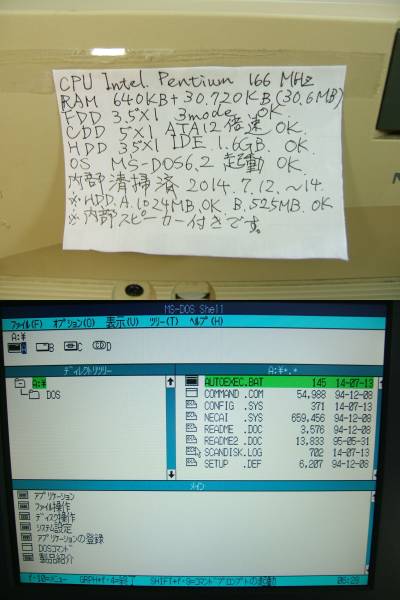 CPU Intel. Pentium 166 MHz
RAM 640KB+30.720KB(30.6MB)
FDD 3.5"×1 3mode OK.
CDD 5"×1 ATA12倍速 OK.
HDD 3.5"×1 IDE. 1.6GB. OK.
OS MS-DOS6.2 起動 OK.
内部清掃済 2014.7.12.~14.
※HDD.A.1024MB.OK B.525MB.OK
※内部スピーカー付きです。
MS-DOS Shell
ファイル(F) オプション(O) 表示(U) ツリー(T) ヘルプ(H)
A:¥
A B C D
ディレクトリツリー A:¥*.*
A:¥
DOS
AUTOEXEC.BAT 145 14-07-13
COMMAND .COM 54,988 94-12-08
CONFIG .SYS 371 14-07-13
NECAI .SYS 659,456 94-12-08
README .DOC 3,576 94-12-08
README2 .DOC 13,833 95-05-31
SCANDISK.LOG 702 14-07-13
SETUP .DEF 6,207 94-12-08
メイン
アプリケーション
ファイル操作
ディスク操作
システム設定
アプリケーションの登録
DOSコマンド
製品紹介
f･10=メニュー GRPH+f･4=終了 SHIFT+f･9=コマンドプロンプトの起動 06:29